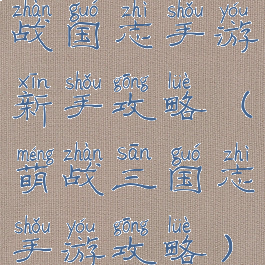 zhàn guó zhì shǒu yóu
战国志手游
xīn shǒu gōng lüè
新手攻略（
méng zhàn sān guó zhì
萌战三国志
shǒu yóu gōng lüè
手游攻略）